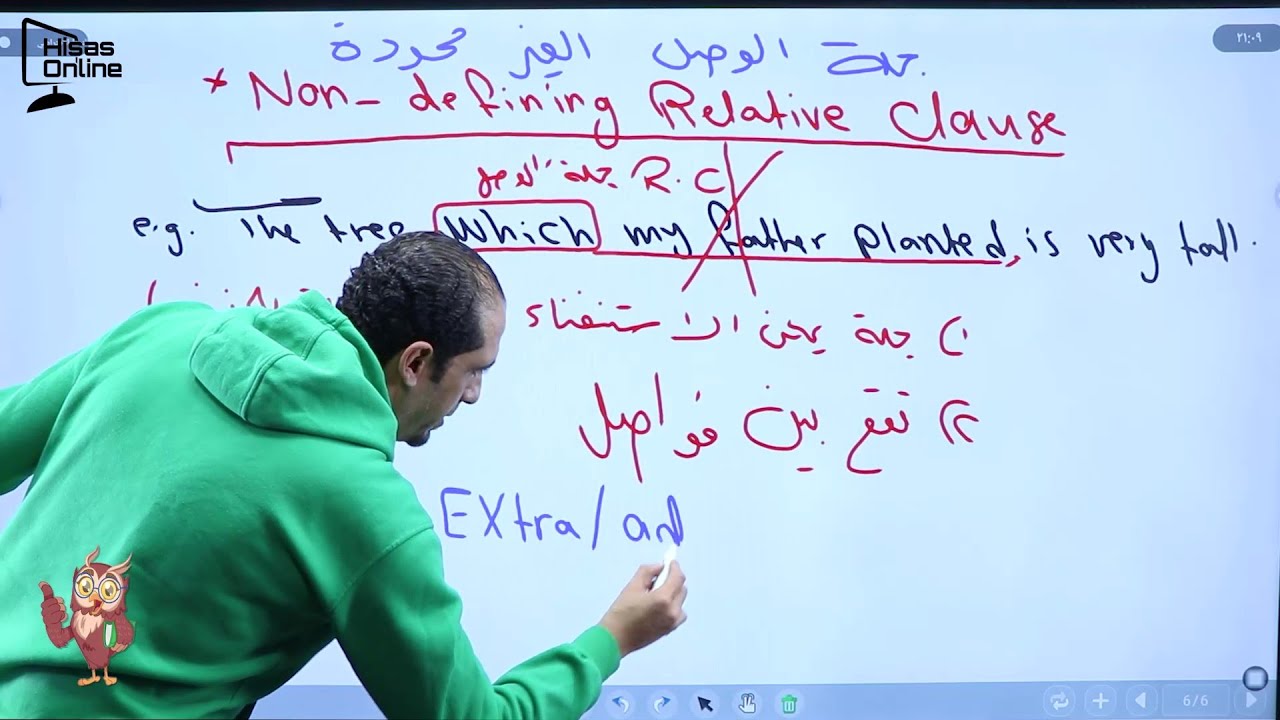 Hisas
Online
٢١:٠٩
جملة الوصل الغير محدودة
* Non-defining Relative Clause
جملة الوصل R.C
e.g. The tree which my father planted, is very tall.
١) جملة يمكن الاستغناء
٢) تقع بين فواصل
EXtra/ad
6/6